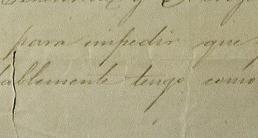 para impedir que
ablemente tengo como